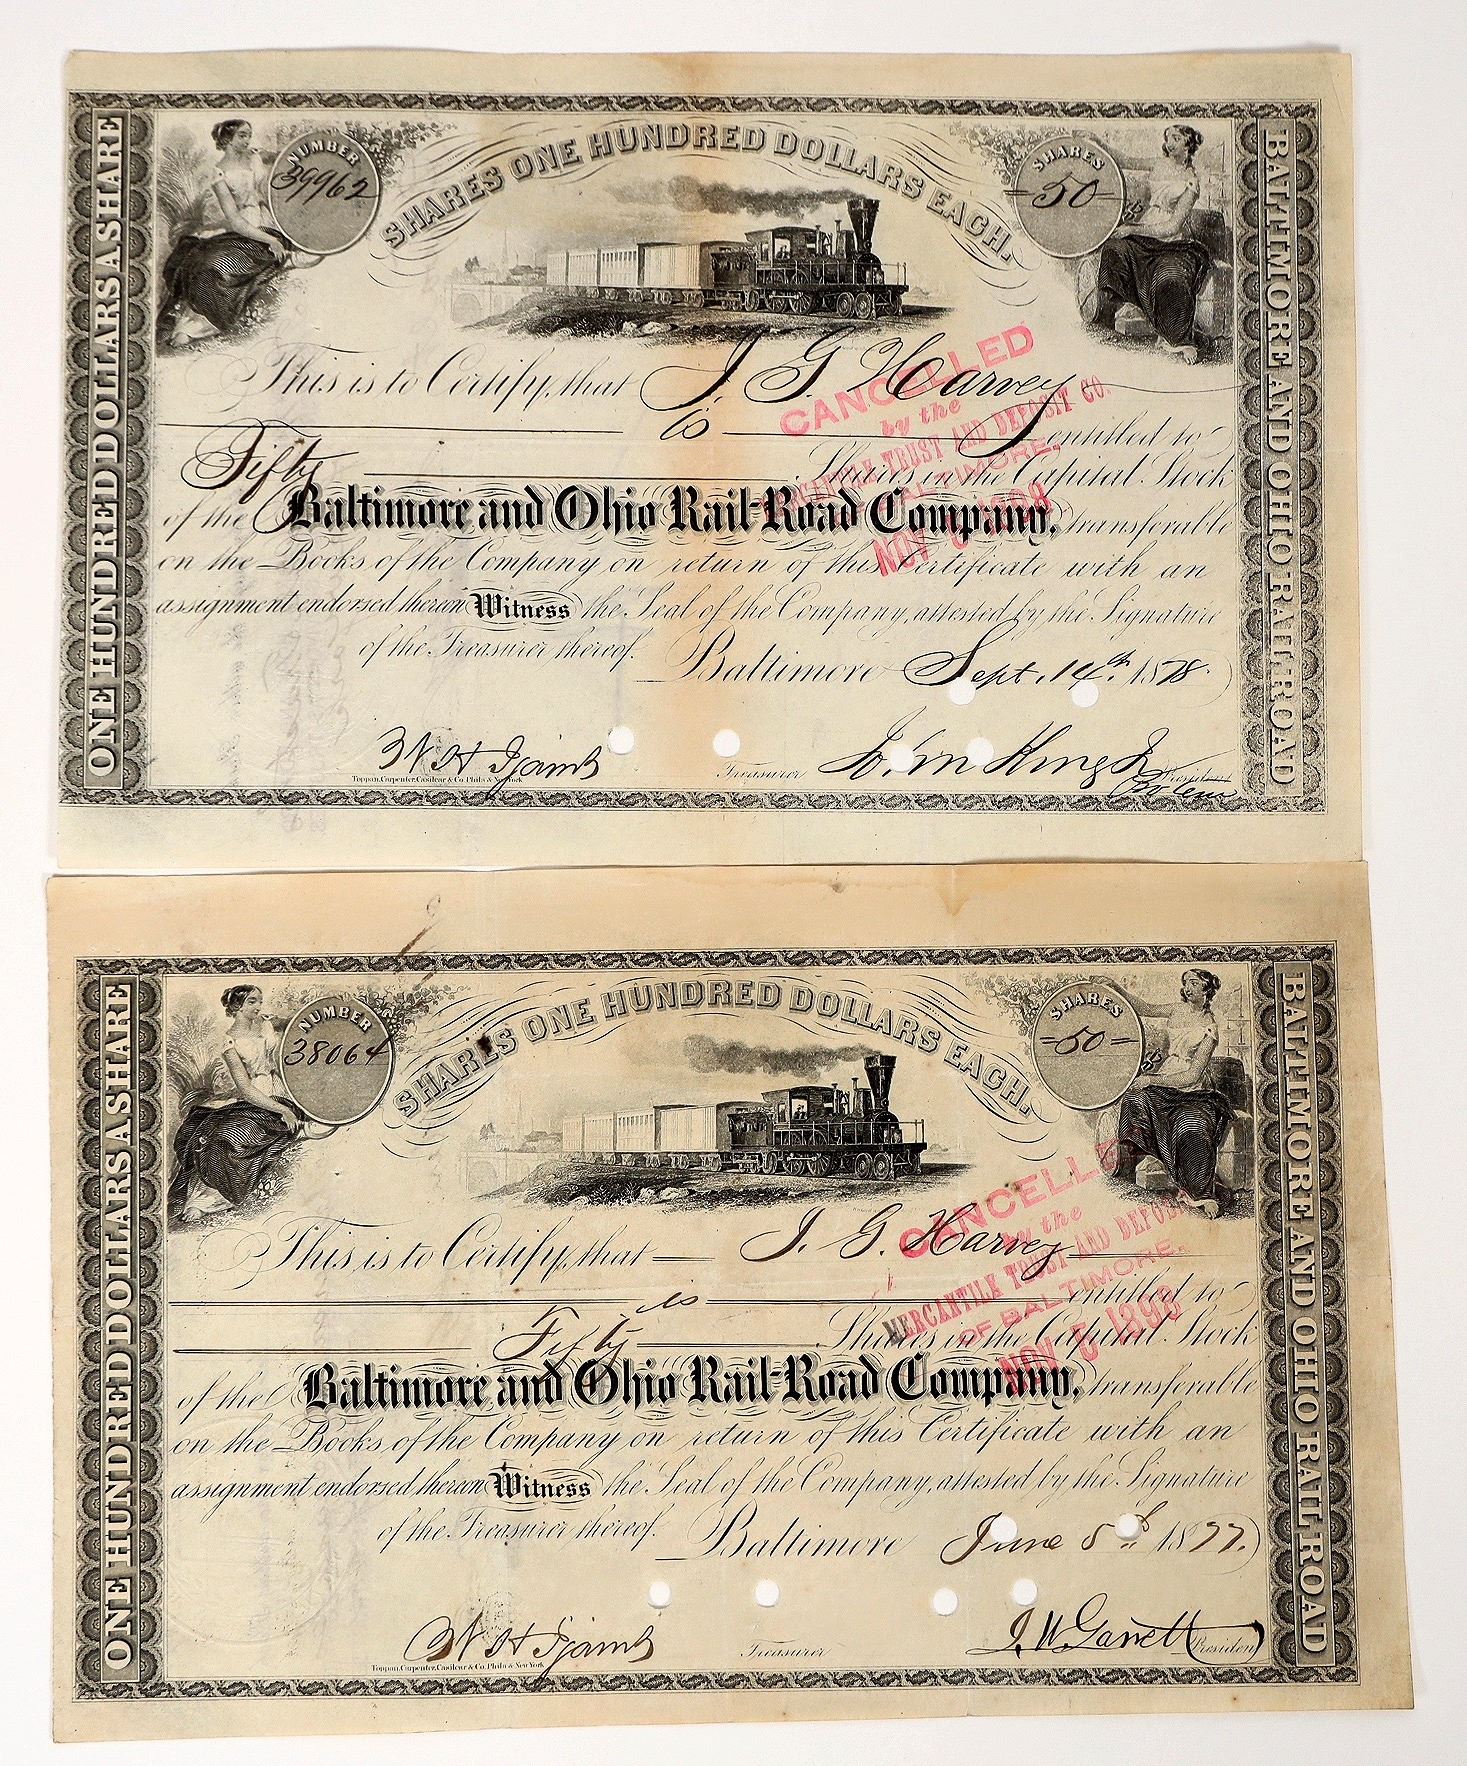 ONE HUNDRED DOLLARS A SHARE
NUMBER
39962
SHARES ONE HUNDRED DOLLARS EACH.
SHARES
-50-
BALTIMORE AND OHIO RAIL ROAD
This is to Certify, that J. G. Harvey
is entitled to
Fifty Shares in the Capital Stock
of the Baltimore and Ohio Rail-Road Company, transferable
on the Books of the Company on return of this Certificate with an
assignment endorsed thereon Witness the Seal of the Company, attested by the Signature
of the Treasurer thereof. Baltimore Sept. 14th 1878.
CANCELLED
by the
MERCANTILE TRUST AND DEPOSIT CO.
BALTIMORE.
NOV
W H Ijams Treasurer John King Jr
President
Pro tem
Toppan, Carpenter, Casilear & Co. Phila & New York
ONE HUNDRED DOLLARS A SHARE
NUMBER
38064
SHARES ONE HUNDRED DOLLARS EACH.
SHARES
-50-
BALTIMORE AND OHIO RAIL ROAD
This is to Certify, that J. G. Harvey
is entitled to
Fifty Shares in the Capital Stock
of the Baltimore and Ohio Rail-Road Company, transferable
on the Books of the Company on return of this Certificate with an
assignment endorsed thereon Witness the Seal of the Company, attested by the Signature
of the Treasurer thereof. Baltimore June 1877.
CANCELLED
by the
MERCANTILE TRUST AND DEPOSIT
OF BALTIMORE.
NOV 1898
W H Ijams Treasurer J. W. Garrett President
Toppan, Carpenter, Casilear & Co. Phila & New York